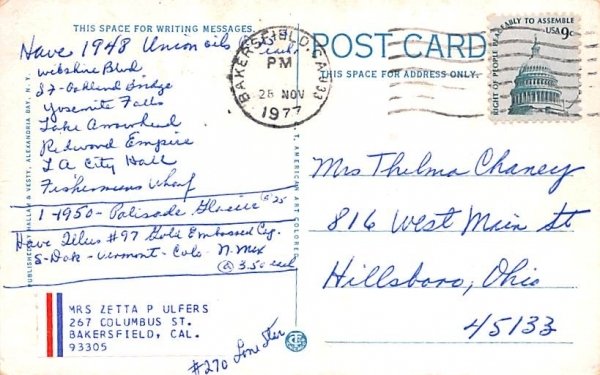 THIS SPACE FOR WRITING MESSAGES
Have 1948 Union oils
each
Wilshire Blvd
S7-Oakland Bridge
Yosemite Falls
Lake Arrowhead
Redwood Empire
L A City Hall
Fishermens Wharf
1-1950-Palisade Glacier @ 25
Have Tilus #97 Gold Embossed Cg.
S-Dak-Vermont-Colo N. Mex
@ 3.50 each
MRS ZETTA P ULFERS
267 COLUMBUS ST.
BAKERSFIELD, CAL.
93305
#270 Lone Star
ALEXANDRIA BAY, N. Y.
AMERICAN ART COLORED
BAKERSFIELD, CA 933
PM
28 NOV
1977
POST CARD
THIS SPACE FOR ADDRESS ONLY.
RIGHT OF PEOPLE PEACEABLY TO ASSEMBLE
USA 9c
Mrs Thelma Chaney
816 West Main St
Hillsboro, Ohio
45133